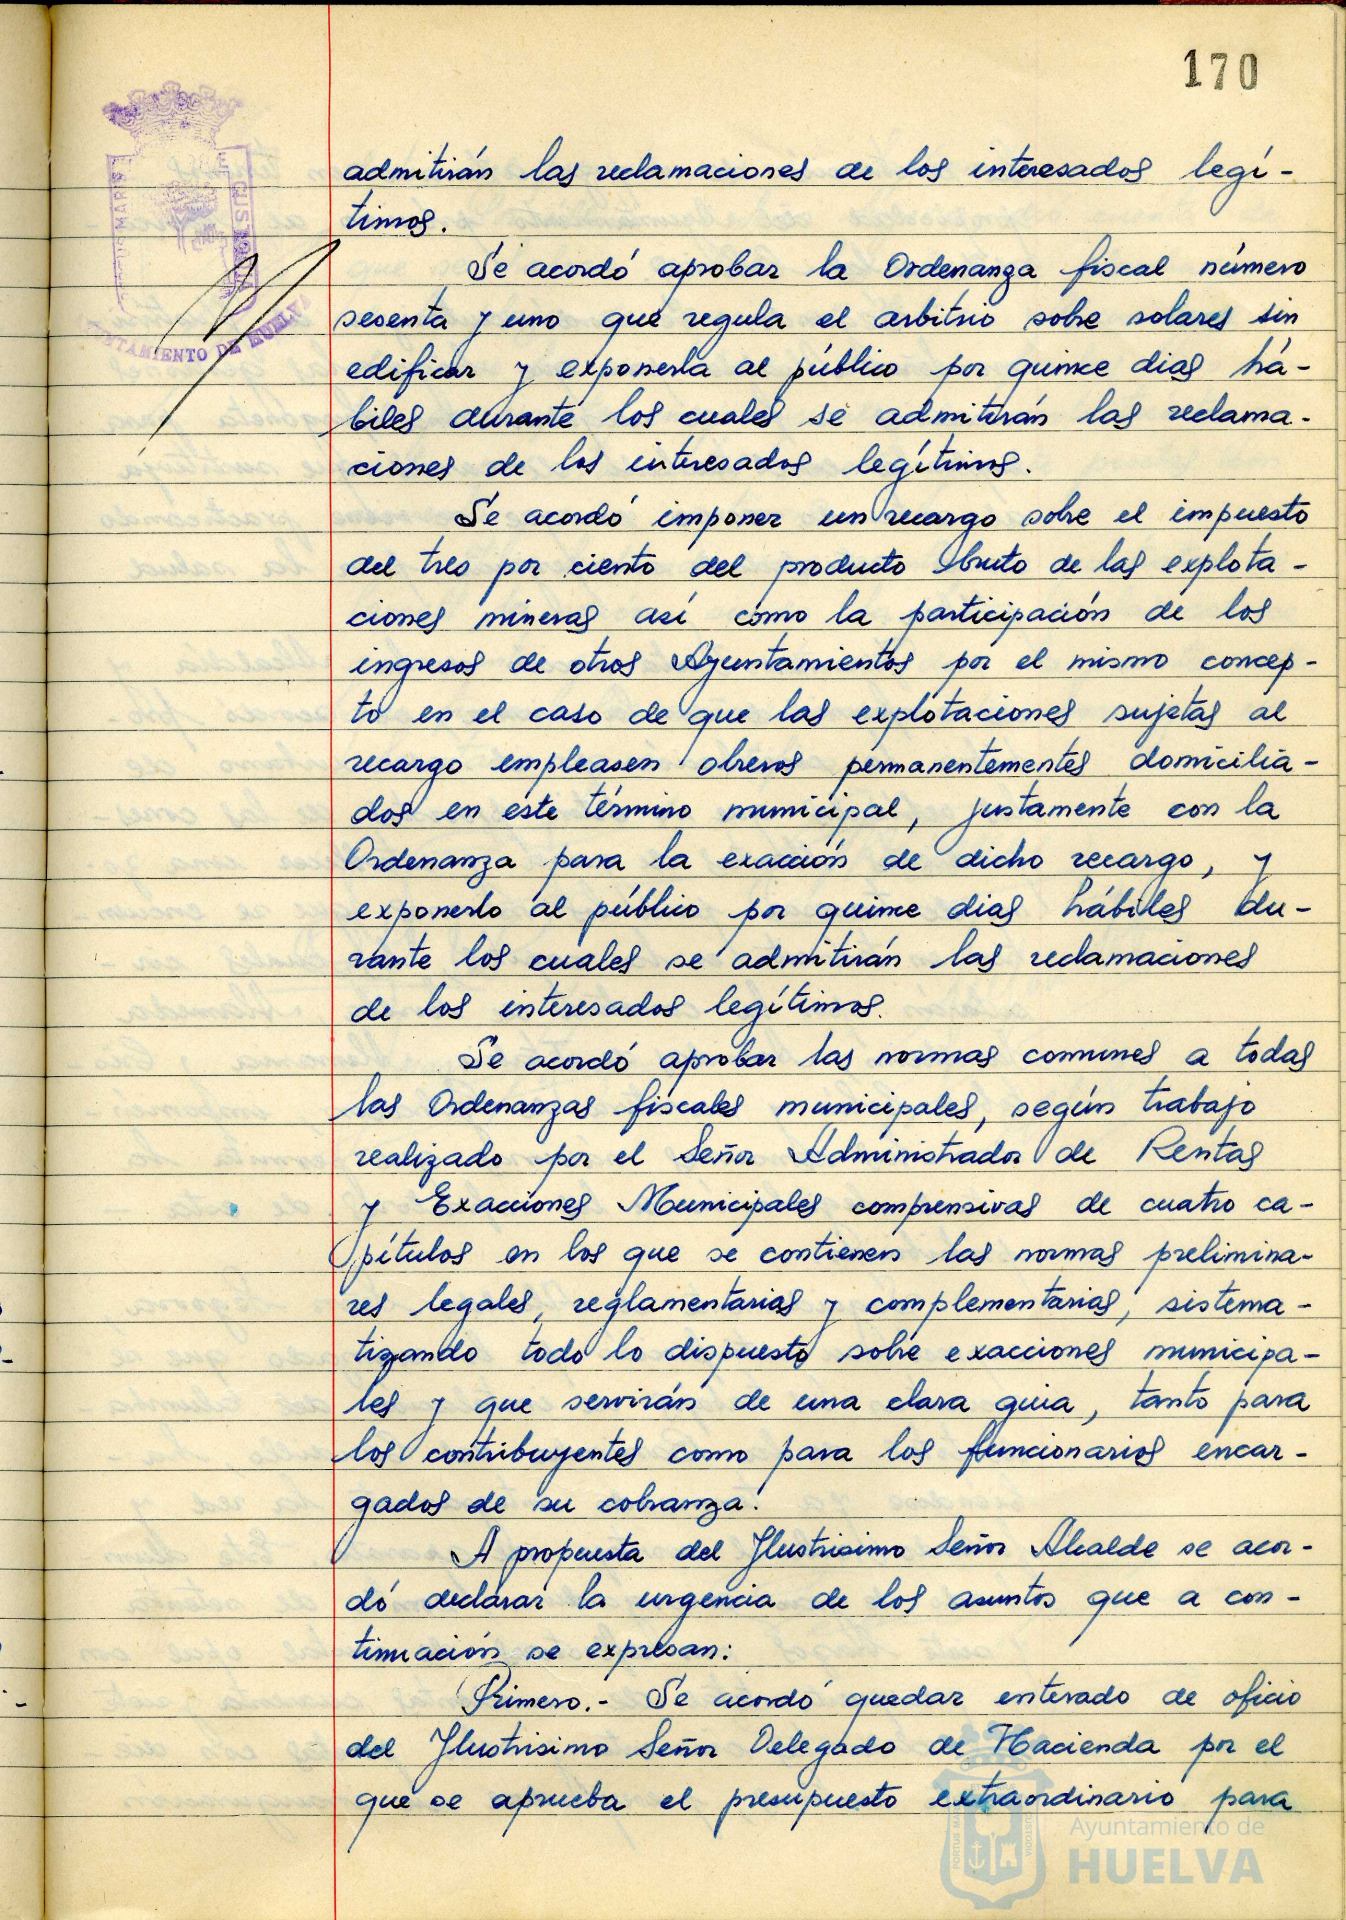 170
admitirán las reclamaciones de los interesados legí-
timos.
Se acordó aprobar la Ordenanza fiscal número
sesenta y uno que regula el arbitrio sobre solares sin
edificar y exponerla al público por quince dias há-
biles durante los cuales se admitirán las reclama-
ciones de los interesados legítimos.
Se acordó imponer un recargo sobre el impuesto
del tres por ciento del producto bruto de las explota-
ciones mineras así como la participación de los
ingresos de otros Ayuntamientos por el mismo concep-
to en el caso de que las explotaciones sujetas al
recargo empleasen obreros permanentementes domicilia-
dos en este término municipal, justamente con la
Ordenanza para la exacción de dicho recargo, y
exponerlo al público por quince dias hábiles du-
rante los cuales se admitirán las reclamaciones
de los interesados legítimos.
Se acordó aprobar las normas comunes a todas
las Ordenanzas fiscales municipales, según trabajo
realizado por el Señor Administrador de Rentas
y Exacciones Municipales comprensivas de cuatro ca-
pítulos en los que se contienen las normas prelimina-
res legales, reglamentarias y complementarias, sistema-
tizando todo lo dispuesto sobre exacciones municipa-
les y que servirán de una clara guia, tanto para
los contribuyentes como para los funcionarios encar-
gados de su cobranza.
A propuesta del Ilustrisimo Señor Alcalde se acor-
dó declarar la urgencia de los asuntos que a con-
tinuación se expresan:
Primero.- Se acordó quedar enterado de oficio
del Ilustrisimo Señor Delegado de Hacienda por el
que se aprueba el presupuesto extraordinario para
Ayuntamiento de
HUELVA